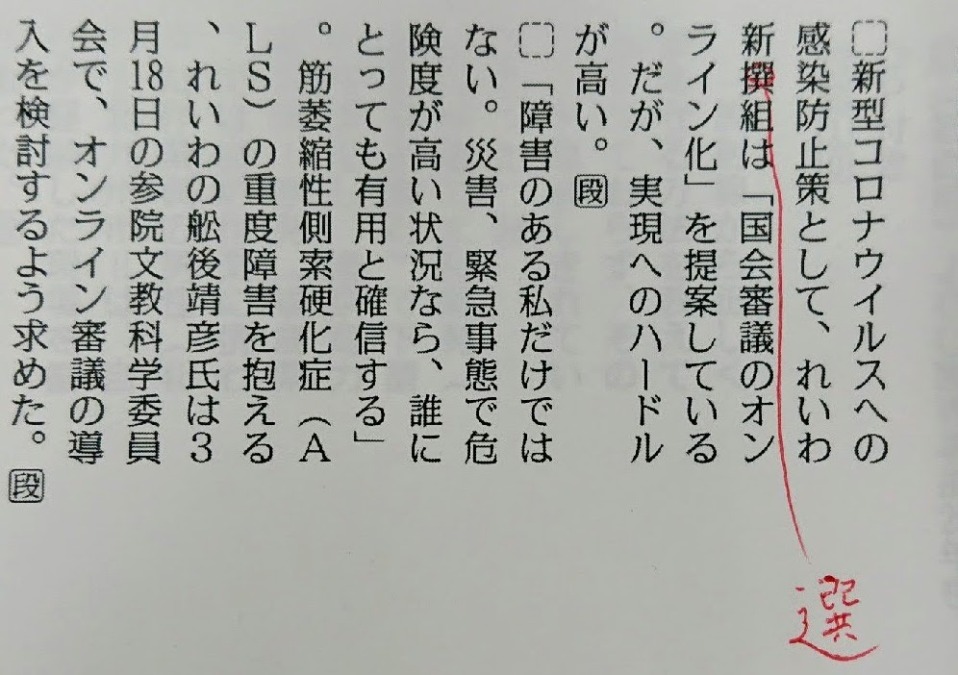 新型コロナウイルスへの
感染防止策として、れいわ
新撰組は「国会審議のオン
ライン化」を提案している
。だが、実現へのハードル
が高い。段
「障害のある私だけでは
ない。災害、緊急事態で危
険度が高い状況なら、誰に
とっても有用と確信する」
。筋萎縮性側索硬化症（A
LS）の重度障害を抱える
、れいわの舩後靖彦氏は3
月18日の参院文教科学委員
会で、オンライン審議の導
入を検討するよう求めた。段
選